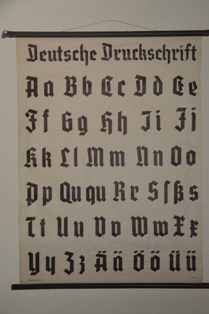 Deutsche Druckschrift
Aa Bb Cc Dd Ee
Ff Gg Hh Ii Jj
Kk Ll Mm Nn Oo
Pp Ququ Rr Sſßs
Tt Uu Vv Ww Xx
Yy Zz Ää Öö Üü